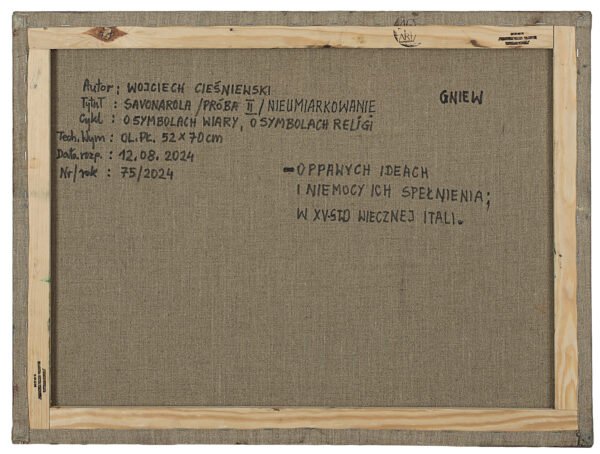 Autor: WOJCIECH CIEŚNIEWSKI
Tytuł : SAVONAROLA /PRÓBA II/ NIEUMIARKOWANIE
GNIEW
Cykl : O SYMBOLACH WIARY, O SYMBOLACH RELIGI
Tech. Wym : OL. PŁ. 52 x 70 cm
Data rozp. : 12.08.2024
Nr/rok : 75/2024
- O PRAWYCH IDEACH
I NIEMOCY ICH SPEŁNIENIA;
W XV-STO WIECZNEJ ITALI.